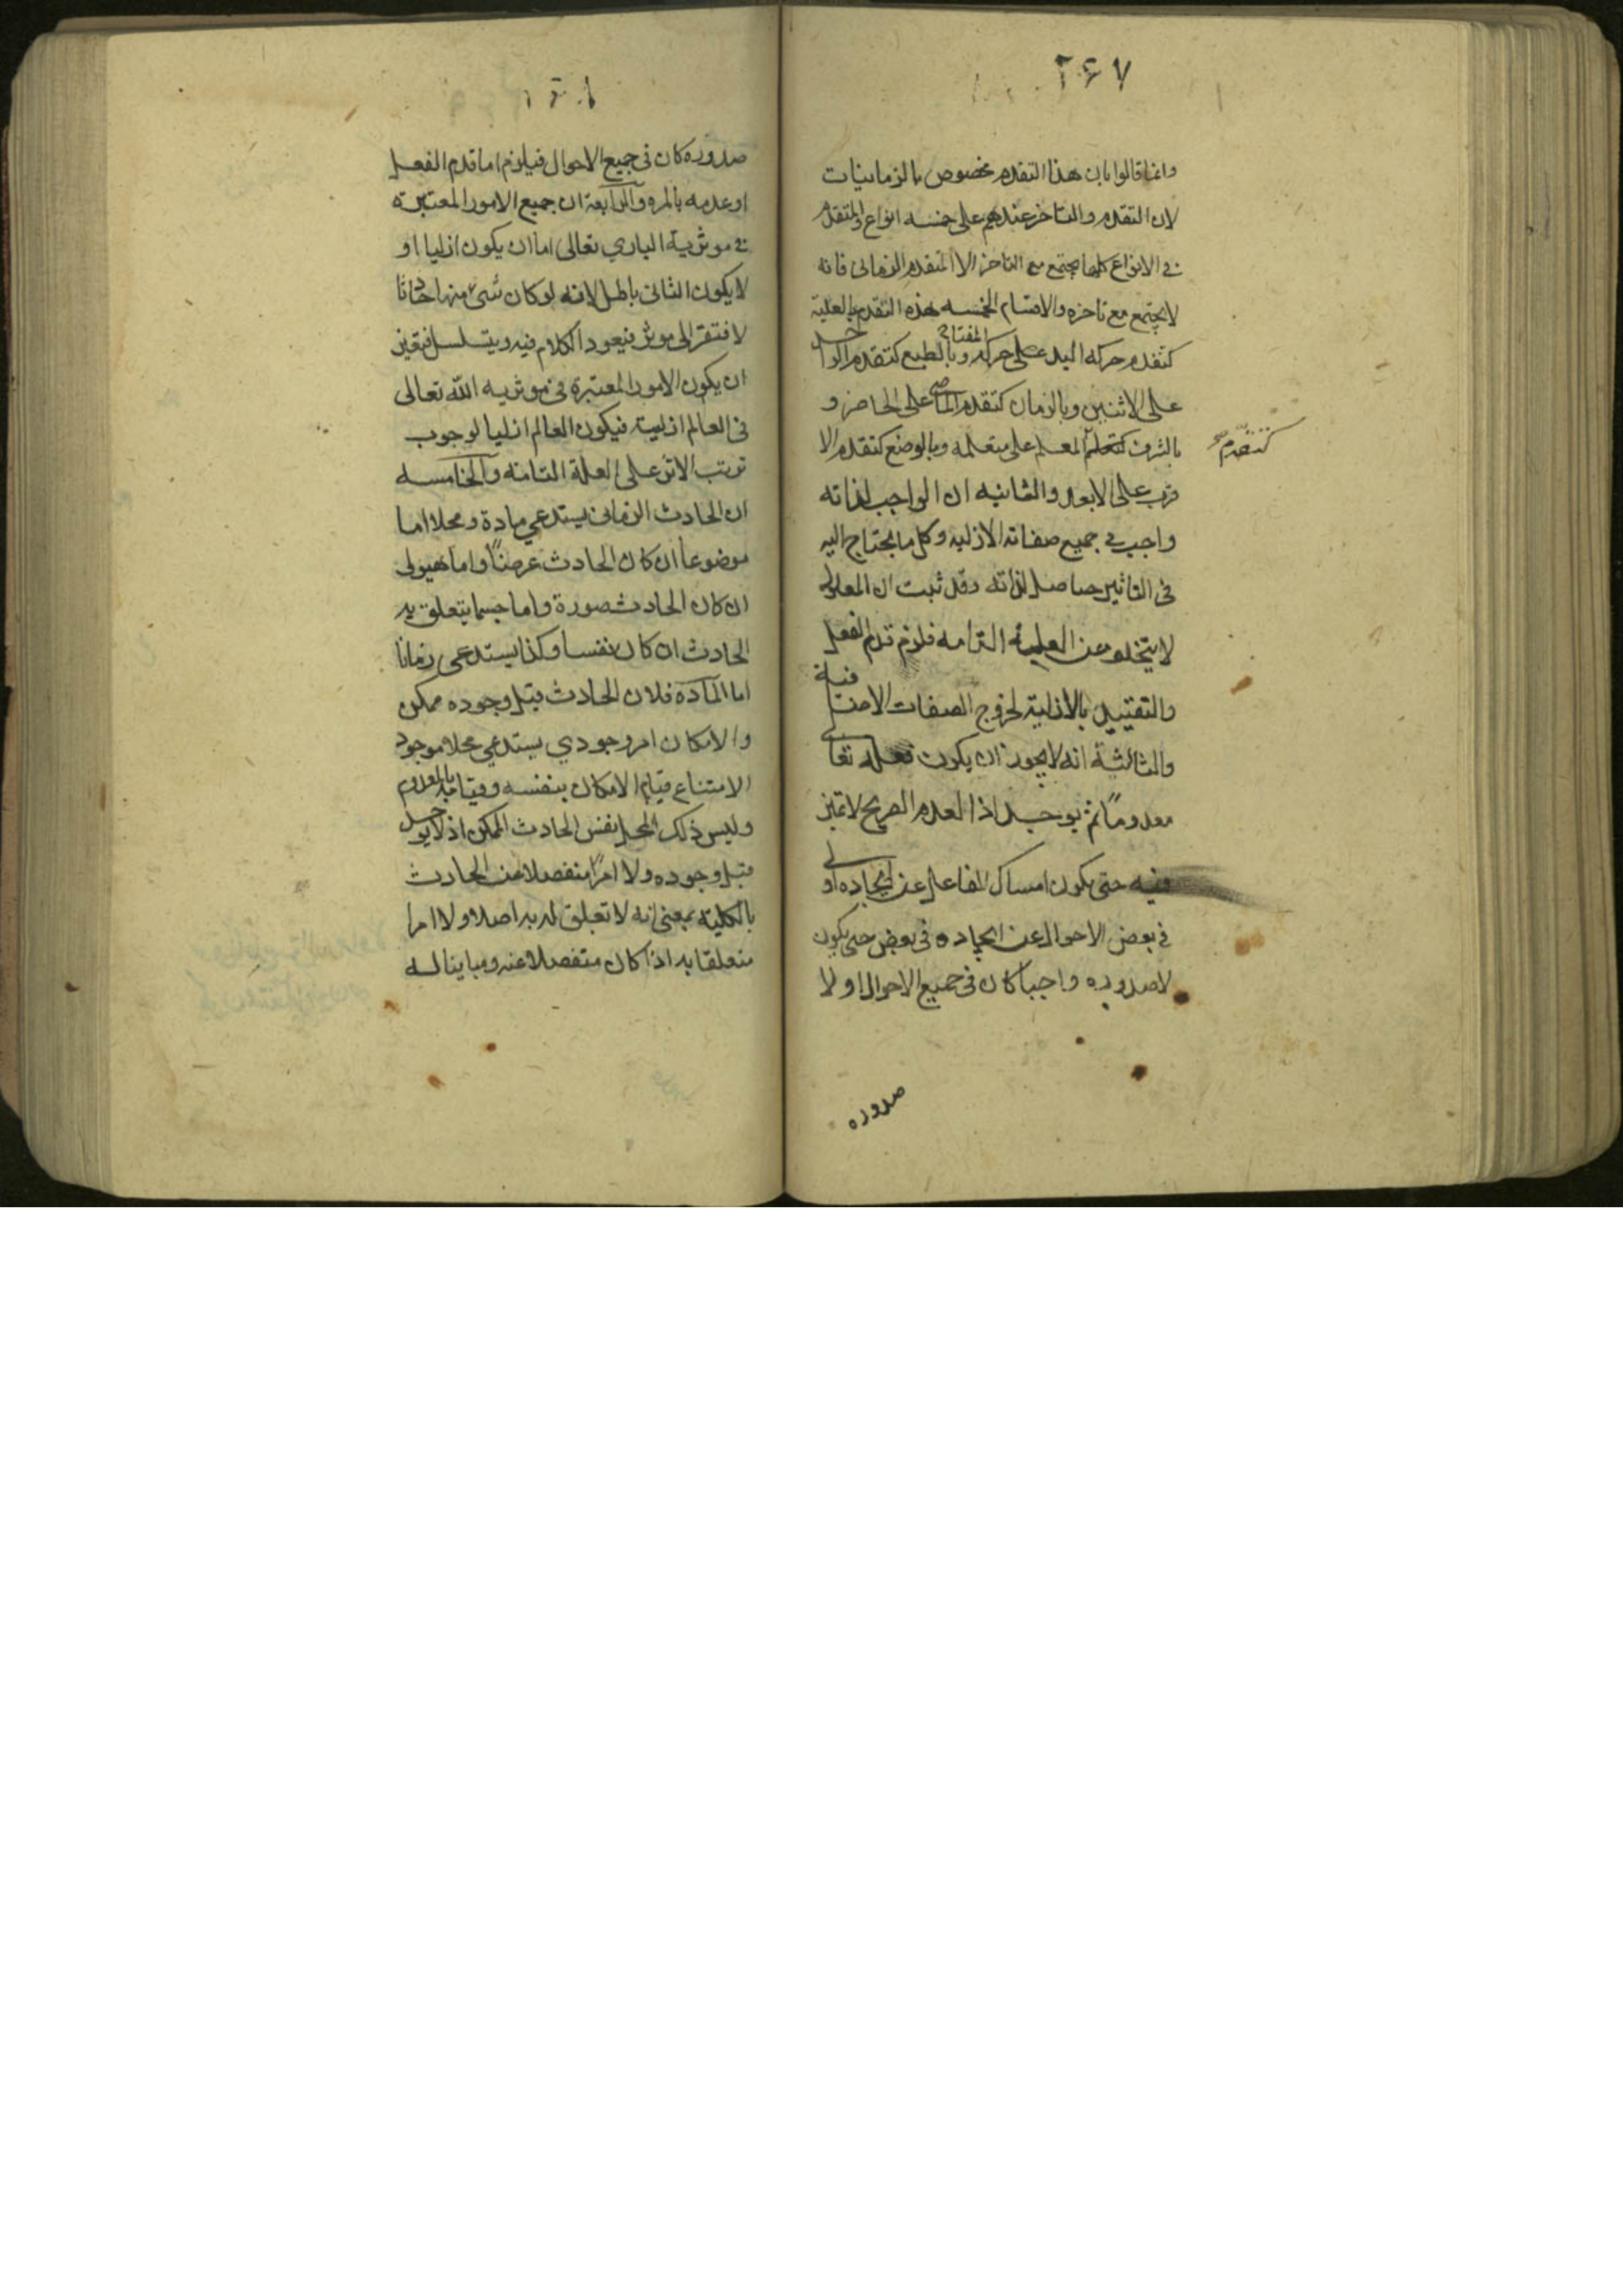 ٢٤٧
وانما قالوا بان هذا التقدم مخصوص بالزمانيات
لان التقدم والتاخر عندهم على خمسه انواع والمتقدم
في الانواع كلها يجتمع مع التاخر الا المتقدم الزماني فانه
لا يجتمع مع تاخره والاقسام الخمسه هذه التقدم بالعلية
كتقدم حركه اليد على حركه المفتاح وبالطبع كتقدم الواحد
على الاثنين وبالزمان كتقدم الماضي على الحاضر و
بالشرف كتعلم المعلم على متعلمه وبالوضع كتقدم الا
كتقدم صح
قرب على الابعد والثانيه ان الواجب لذاته
واجب في جميع صفاته الازليه وكل ما يحتاج اليه
في التاثير حاصل لذاته وقد ثبت ان المعلول
لا يتخلو عن العلية التامه فلزم قدم الفعل
والتقييد بالازلية لخروج الصفات الاضافية
والثالثة انه لا يجوز ان يكون فعله تعالى
معدوماً ثم يوجد اذا العدم الصريح لا تميز
فيه حتى يكون امساك الفاعل عن ايجاده اولى
في بعض الاحوال عن ايجاده في بعض حتى يكون
لا صدوره واجبا كان في جميع الاحوال او لا
صدوره
صدوره كان في جميع الاحوال فيلزم اما قدم الفعل
او عدمه بالمره والرابعة ان جميع الامور المعتبرة
في موثرية الباري تعالى اما ان يكون ازليا او
لا يكون الثاني باطل لانه لو كان شيء منها حادثا
لافتقر الى موثر فيعود الكلام فيه ويتسلسل فتعين
ان يكون الامور المعتبرة في موثريه الله تعالى
في العالم ازلية فيكون العالم ازليا لوجوب
ترتب الاثر على العلة التامه والخامسه
ان الحادث الزماني يستدعي مادة ومحلا اما
موضوعا ان كان الحادث عرضاً واما هيولى
ان كان الحادث صورة واما جسما يتعلق به
الحادث ان كان نفسا وكذا يستدعي زمانا
اما المادة فلان الحادث قبل وجوده ممكن
والامكان امر وجودي يستدعي محلا موجود
الامتناع قيام الامكان بنفسه وقيامه بالمعدوم
وليس ذلك المحل نفس الحادث الممكن اذ لا يوجد
قبل وجوده ولا امراً منفصلا عن الحادث
بالكلية بمعنى انه لا تعلق له به اصلا ولا امرا
متعلقا به اذا كان منفصلا عنه ومباينا له